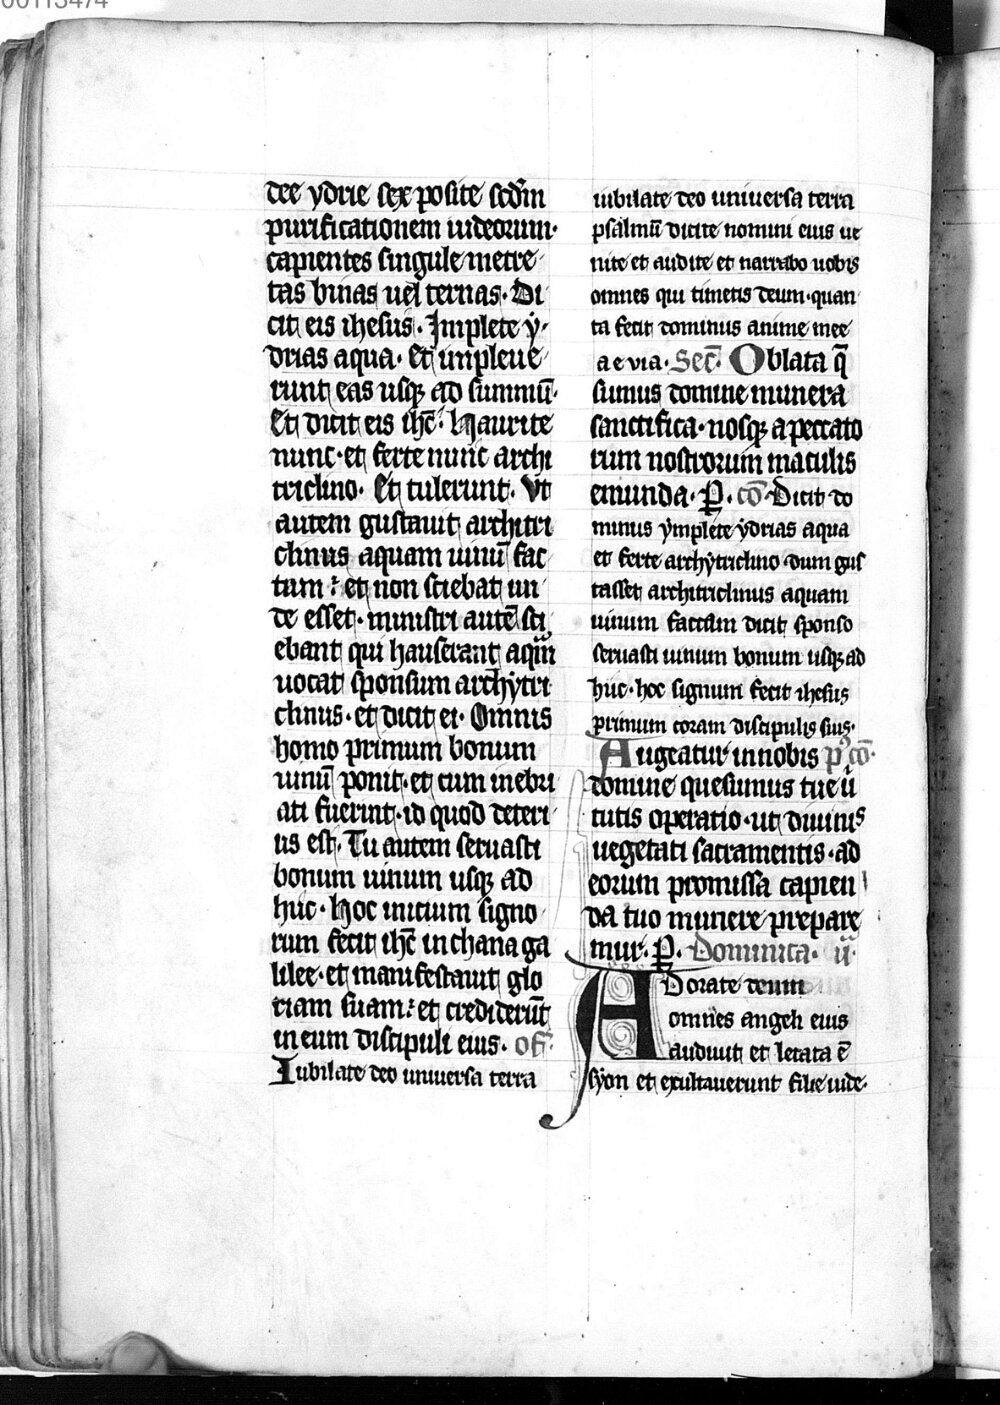 00113474
dee ydrie sex posite scd'm
purificationem iudeorum·
capientes singule metre
tas binas uel ternas· Di
cit eis ihesus· Implete ẏ
drias aqua· Et impleue
runt eas usq; ad summū·
Et dicit eis ihc̄· haurite
nunc· et ferte nunc archi
triclino· Et tulerunt· Vt
autem gustauit architri
clinus aquam uinū fac
tam· et non sciebat un
de esset· ministri autē sci
ebant qui hauserant aquā
uocat sponsum archẏtri
clinus· et dicit ei· Omnis
homo primum bonum
uinū ponit· et cum inebri
ati fuerint· id quod deteri
us est· Tu autem seruasti
bonum uinum usq; ad
huc· hoc inicium signo
rum fecit ihc̄ in chana ga
lilee· et manifestauit glo
riam suam· et crediderūt
in eum discipuli eius· of̄
Iubilate deo uniuersa terra
iubilate deo uniuersa terra
psalmū dicite nomini eius ue
nite et audite et narrabo uobis
omnes qui timetis deum· quan
ta fecit dominus anime mee
aeuia· Sec̄· Oblata q̄
sumus domine munera
sanctifica· nosq; a peccato
rum nostrorum maculis
emunda· P· cō Dicit do
minus ẏmplete ẏdrias aqua
et ferte archẏtriclino· dum gus
tasset architriclinus aquam
uinum factam dicit sponso
seruasti uinum bonum usq; ad
huc· hoc signum fecit ihesus
primum coram discipulis suis·
Augeatur in nobis p' cō·
domine quesumus tue ui
tutis operatio· ut diuinis
uegetati sacramentis· ad
eorum promissa capien
da tuo munere prepare
mur· P· Dominica· ii·
Adorate deum
omnes angeli eius
audiuit et letata ē
sẏon et exultauerunt filie iude·